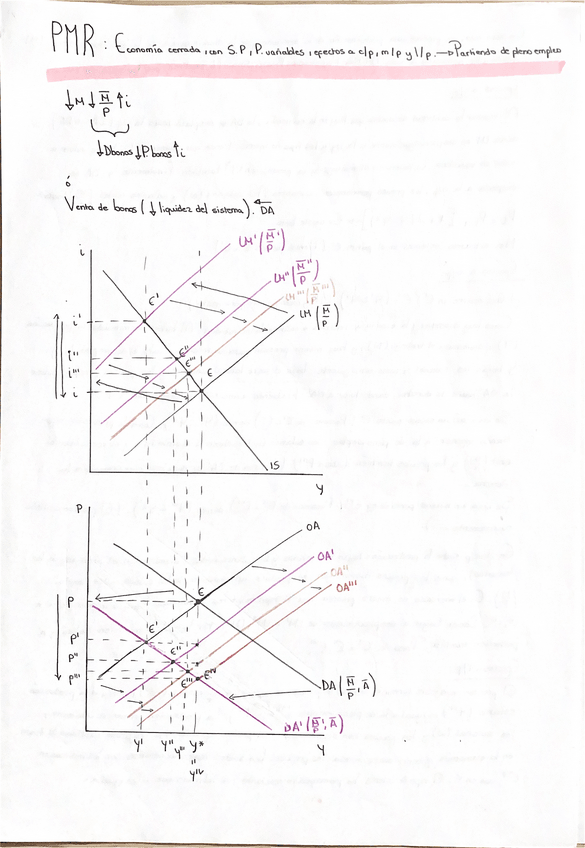 PMR: Economía cerrada, con S.P, P. variables, efectos a c/p, m/p y l/p. → Partiendo de pleno empleo
↓M ↓M̅/P ↑i
↓Dbonos ↓P.bonos ↑i
ó
Venta de bonos (↓ liquidez del sistema). DA
i
LM' (M̅'/P)
LM'' (M̅''/P)
LM''' (M̅'''/P)
LM (M̅/P)
E'
i'
E''
i''
E'''
i'''
E
i
IS
Y
P
OA
OA'
OA''
OA'''
E
P
E'
P'
E''
P''
E''' E'''
P'''
DA (M̅/P, A̅)
DA' (M̅'/P, A̅)
Y' Y'' Y''' Y* Y
"
Y'''